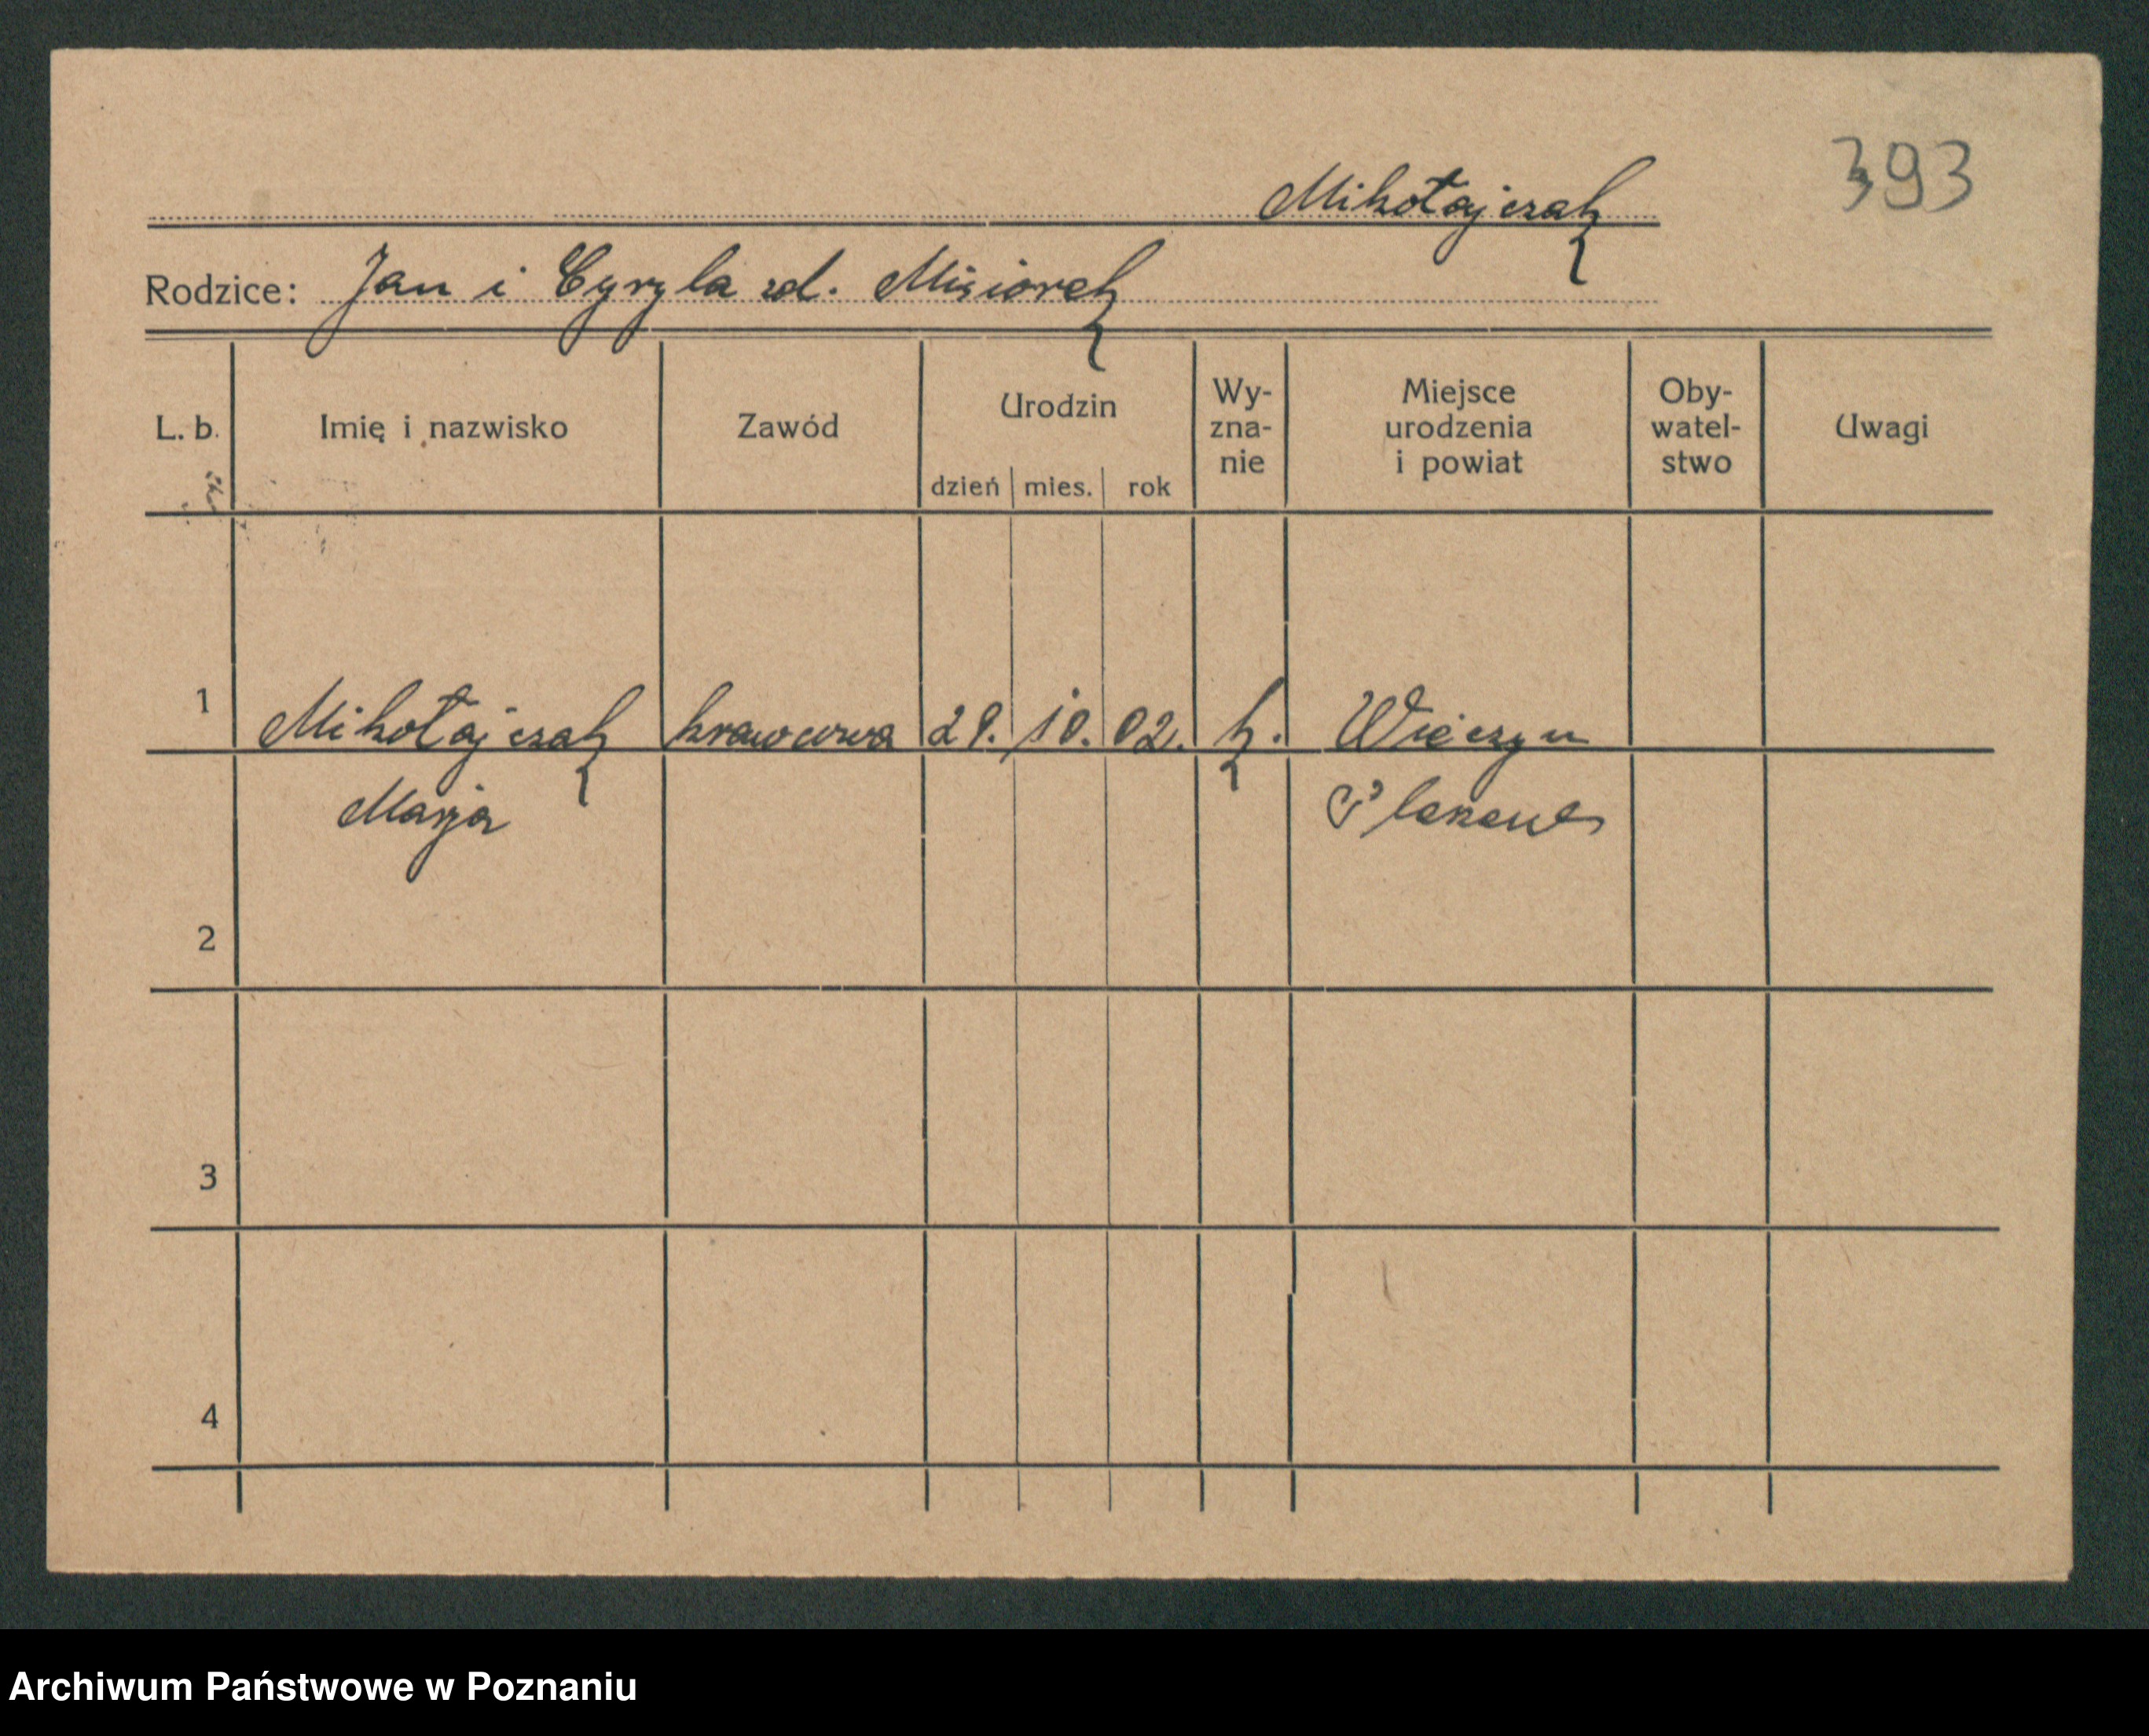 393
Mikołajczak
Rodzice: Jan i Cyryla zd. Misiorek
L. b. Imię i nazwisko Zawód Urodzin dzień mies. rok Wy-zna-nie Miejsce urodzenia i powiat Oby-watel-stwo Uwagi
1 Mikołajczak krawcowa 29. 10. 02. k. Wieczyn
Marja Pleszew
2
3
4
Archiwum Państwowe w Poznaniu